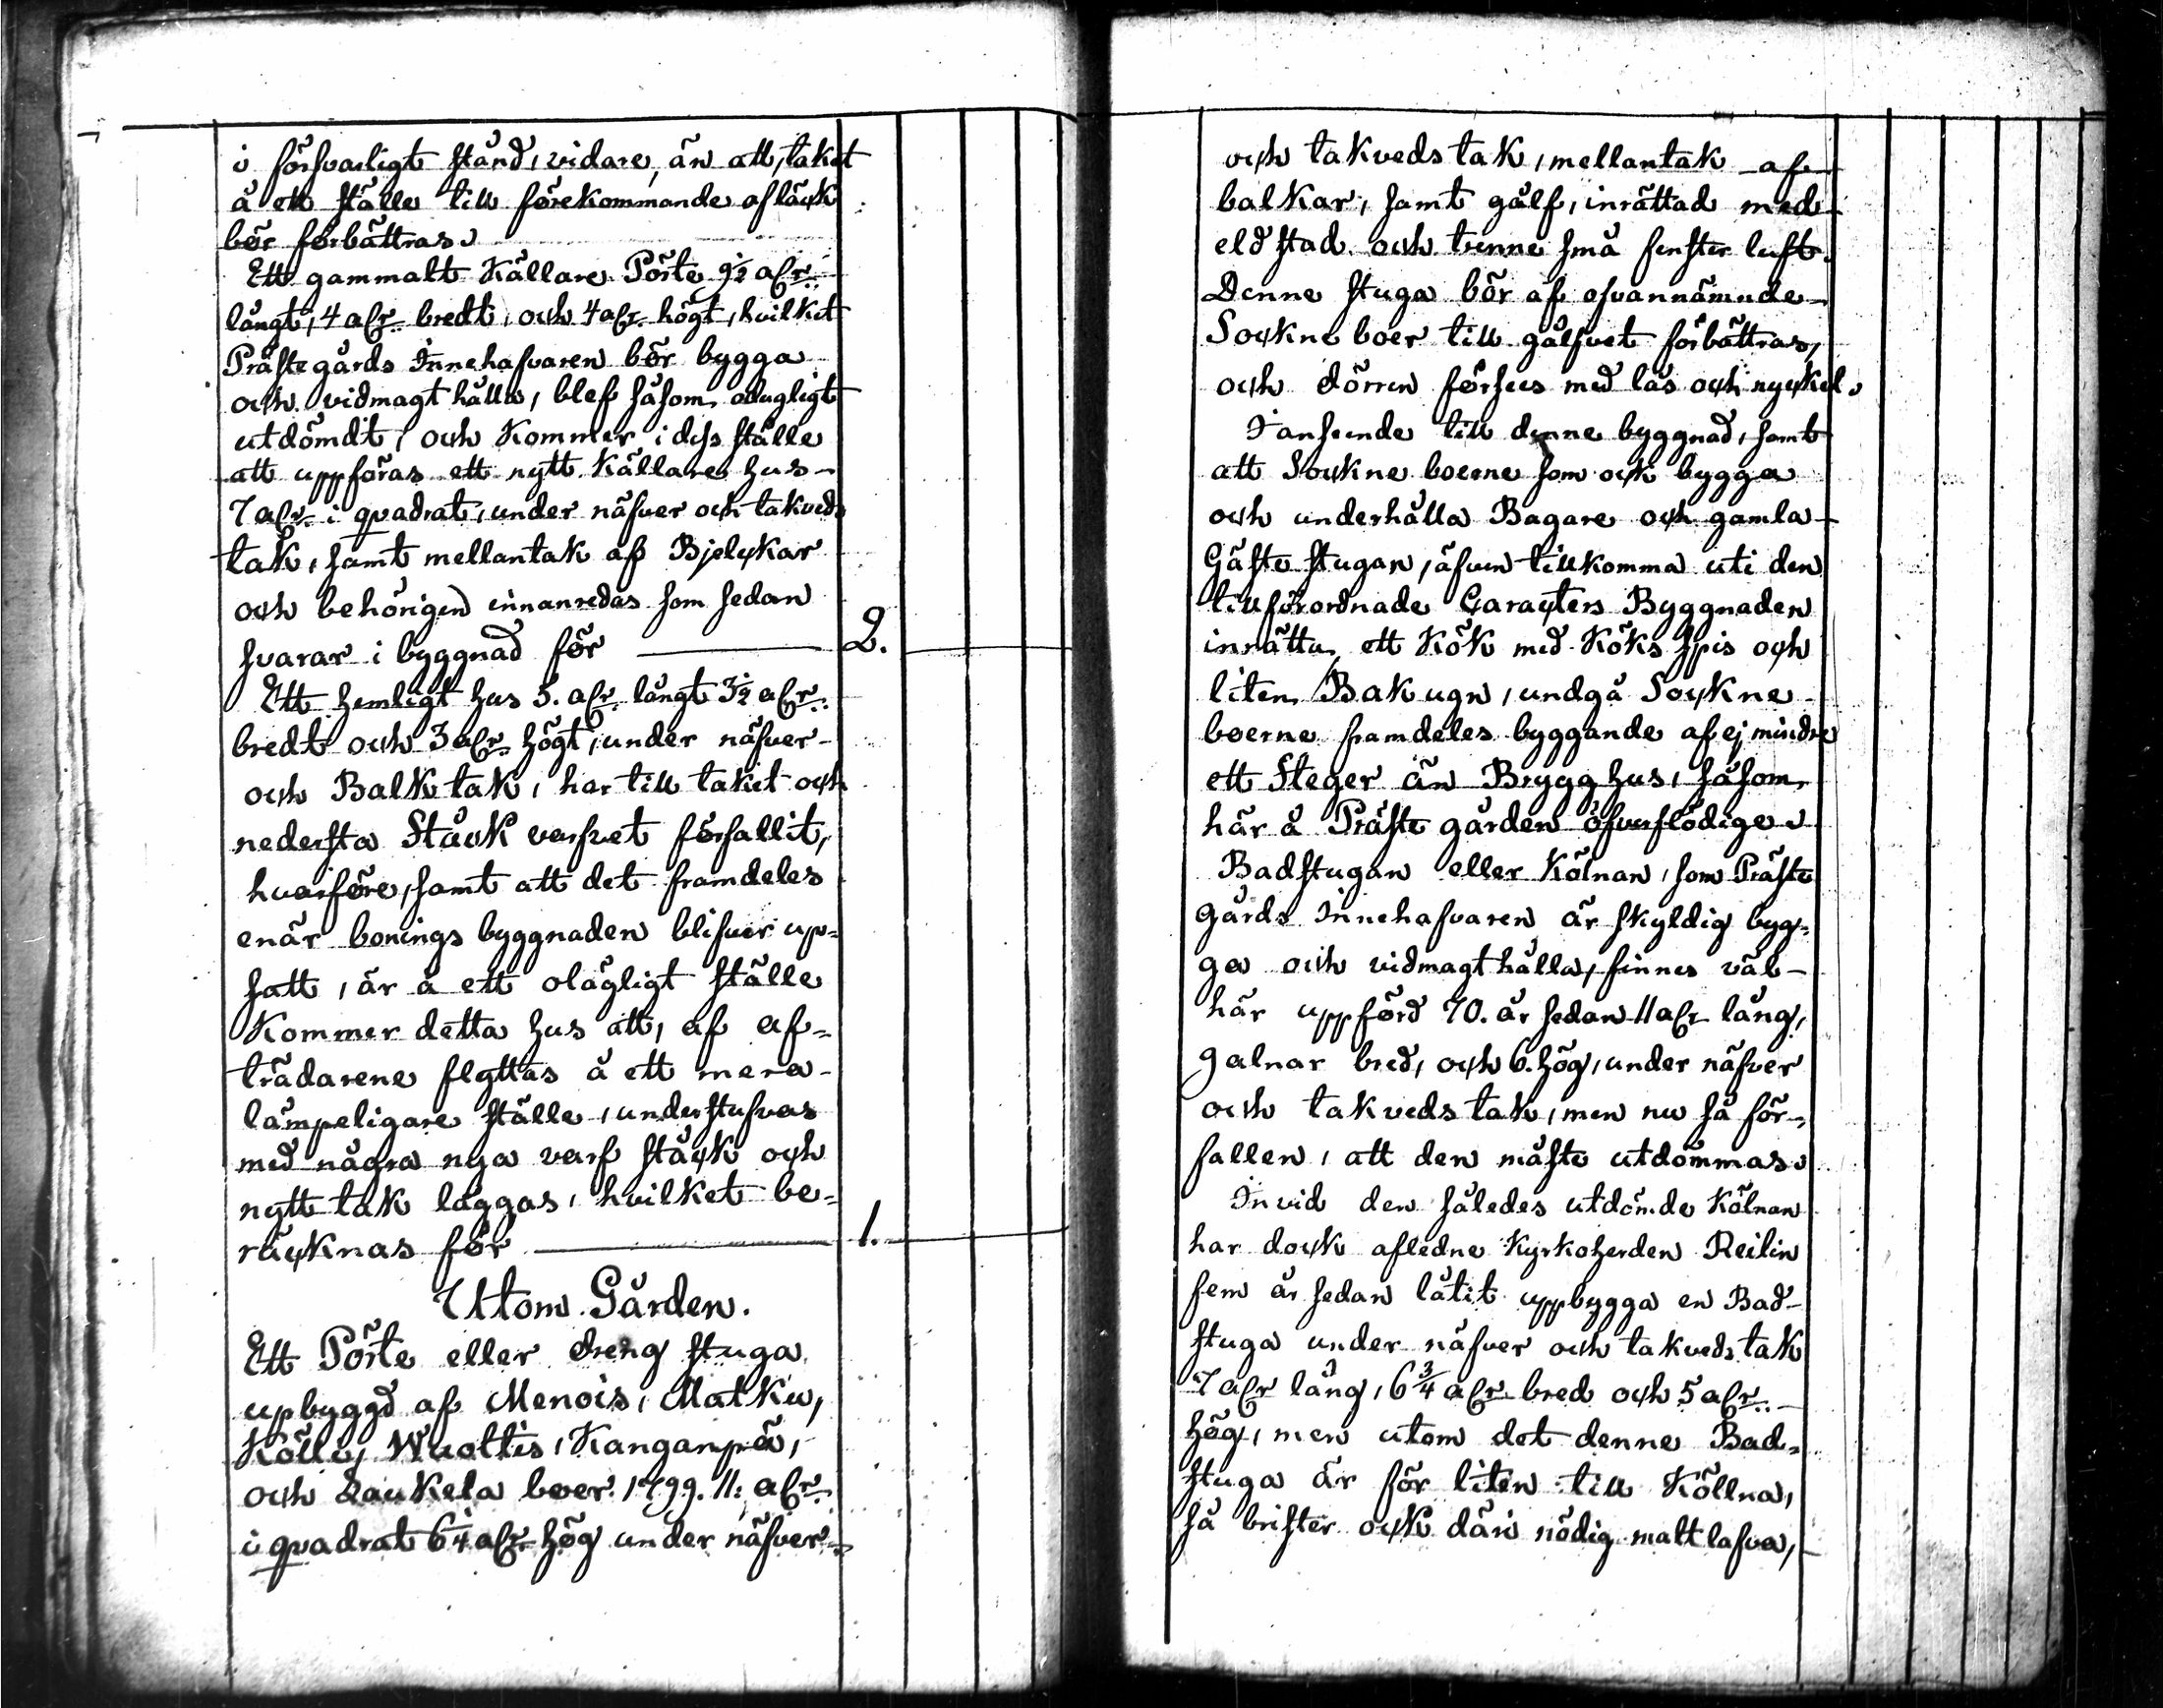 i försvarligt stånd, vidare, än att, taket
å ett ställe till förekommande af läck
bör förbättras.
Ett gammalt Källare Pörte 9½ alr.
långt, 4 alr. bredt, och 4 alr. högt, hvilket
Prästegårds Innehafvaren bör bygga
och vidmagthålla, blef såsom odugligt
utdömdt, och Kommer i dess ställe
att uppföras ett nytt Källare hus
7 alr. i qvadrat, under näfver och takveds
tak, samt mellantak af Bjelckar
och behörigen innanredas som sedan
svarar i byggnad för 2.
Ett hemligt hus 5. alr. långt 3½ alr.
bredt och 3 alr. högt, under näfver
och Balk tak, har till taket och
nedersta Stäck varfvet förfallit,
hvarföre, samt att det framdeles
enär bonings byggnaden blifver up=
satt, är å ett olägligt ställe
Kommer detta hus att, af af=
trädarene flyttas å ett mera
lämpeligare ställe, understufvas
med några nya varf stäck och
nytt tak läggas, hvilket be=
räcknas för 1.
Utom Gården.
Ett Pörte eller dreng stuga
upbyggd af Menois, Matku,
Kölly, Wuottis, Kanganpä,
och Laukela boer 1799. 11: alr.
i qvadrat 6¼ alr. hög under näfver=
och takveds tak, mellantak af
balkar, samt gålf, inrättad med
eldstad och tvenne små fenster luft.
Denne stuga bör af ofvannämnde
Sockne boer till gålfvet förbättras,
och dörren förses med lås och nyckel.
I anseende till denne byggnad, samt
att Sockne boerne som ock bygga
och underhålla Bagare och gamla
Gäste stugan, äfven tillkomma uti den
tillförordnade Caracters Byggnaden
inrätta, ett Kök med Köks spis och
liten Bakugn, undgå Sockne
boerne framdeles byggande af ej mindre
ett Steger än Brygghus, såsom
här å Präste gården öfverflödige.
Badstugan eller Kölnan, som Präste
gårds Innehafvaren är skyldig byg=
ga och vidmagthålla, finnes väl
här uppförd 70. år sedan 11 alr lång,
9 alnar bred, och 6. hög, under näfver
och takveds tak, men nu så för=
fallen, att den måste utdömmas.
Invid den således utdömde Kölnan
har dock afledne Kyrkoherden Reilin
fem år sedan låtit uppbygga en Bad=
stuga under näfver och takveds tak
7 alr lång, 6¾ alr bred och 5 alr.
hög, men utom det denne Bad=
stuga är för liten till Köllna,
så brister ock däri nödig maltlafva,